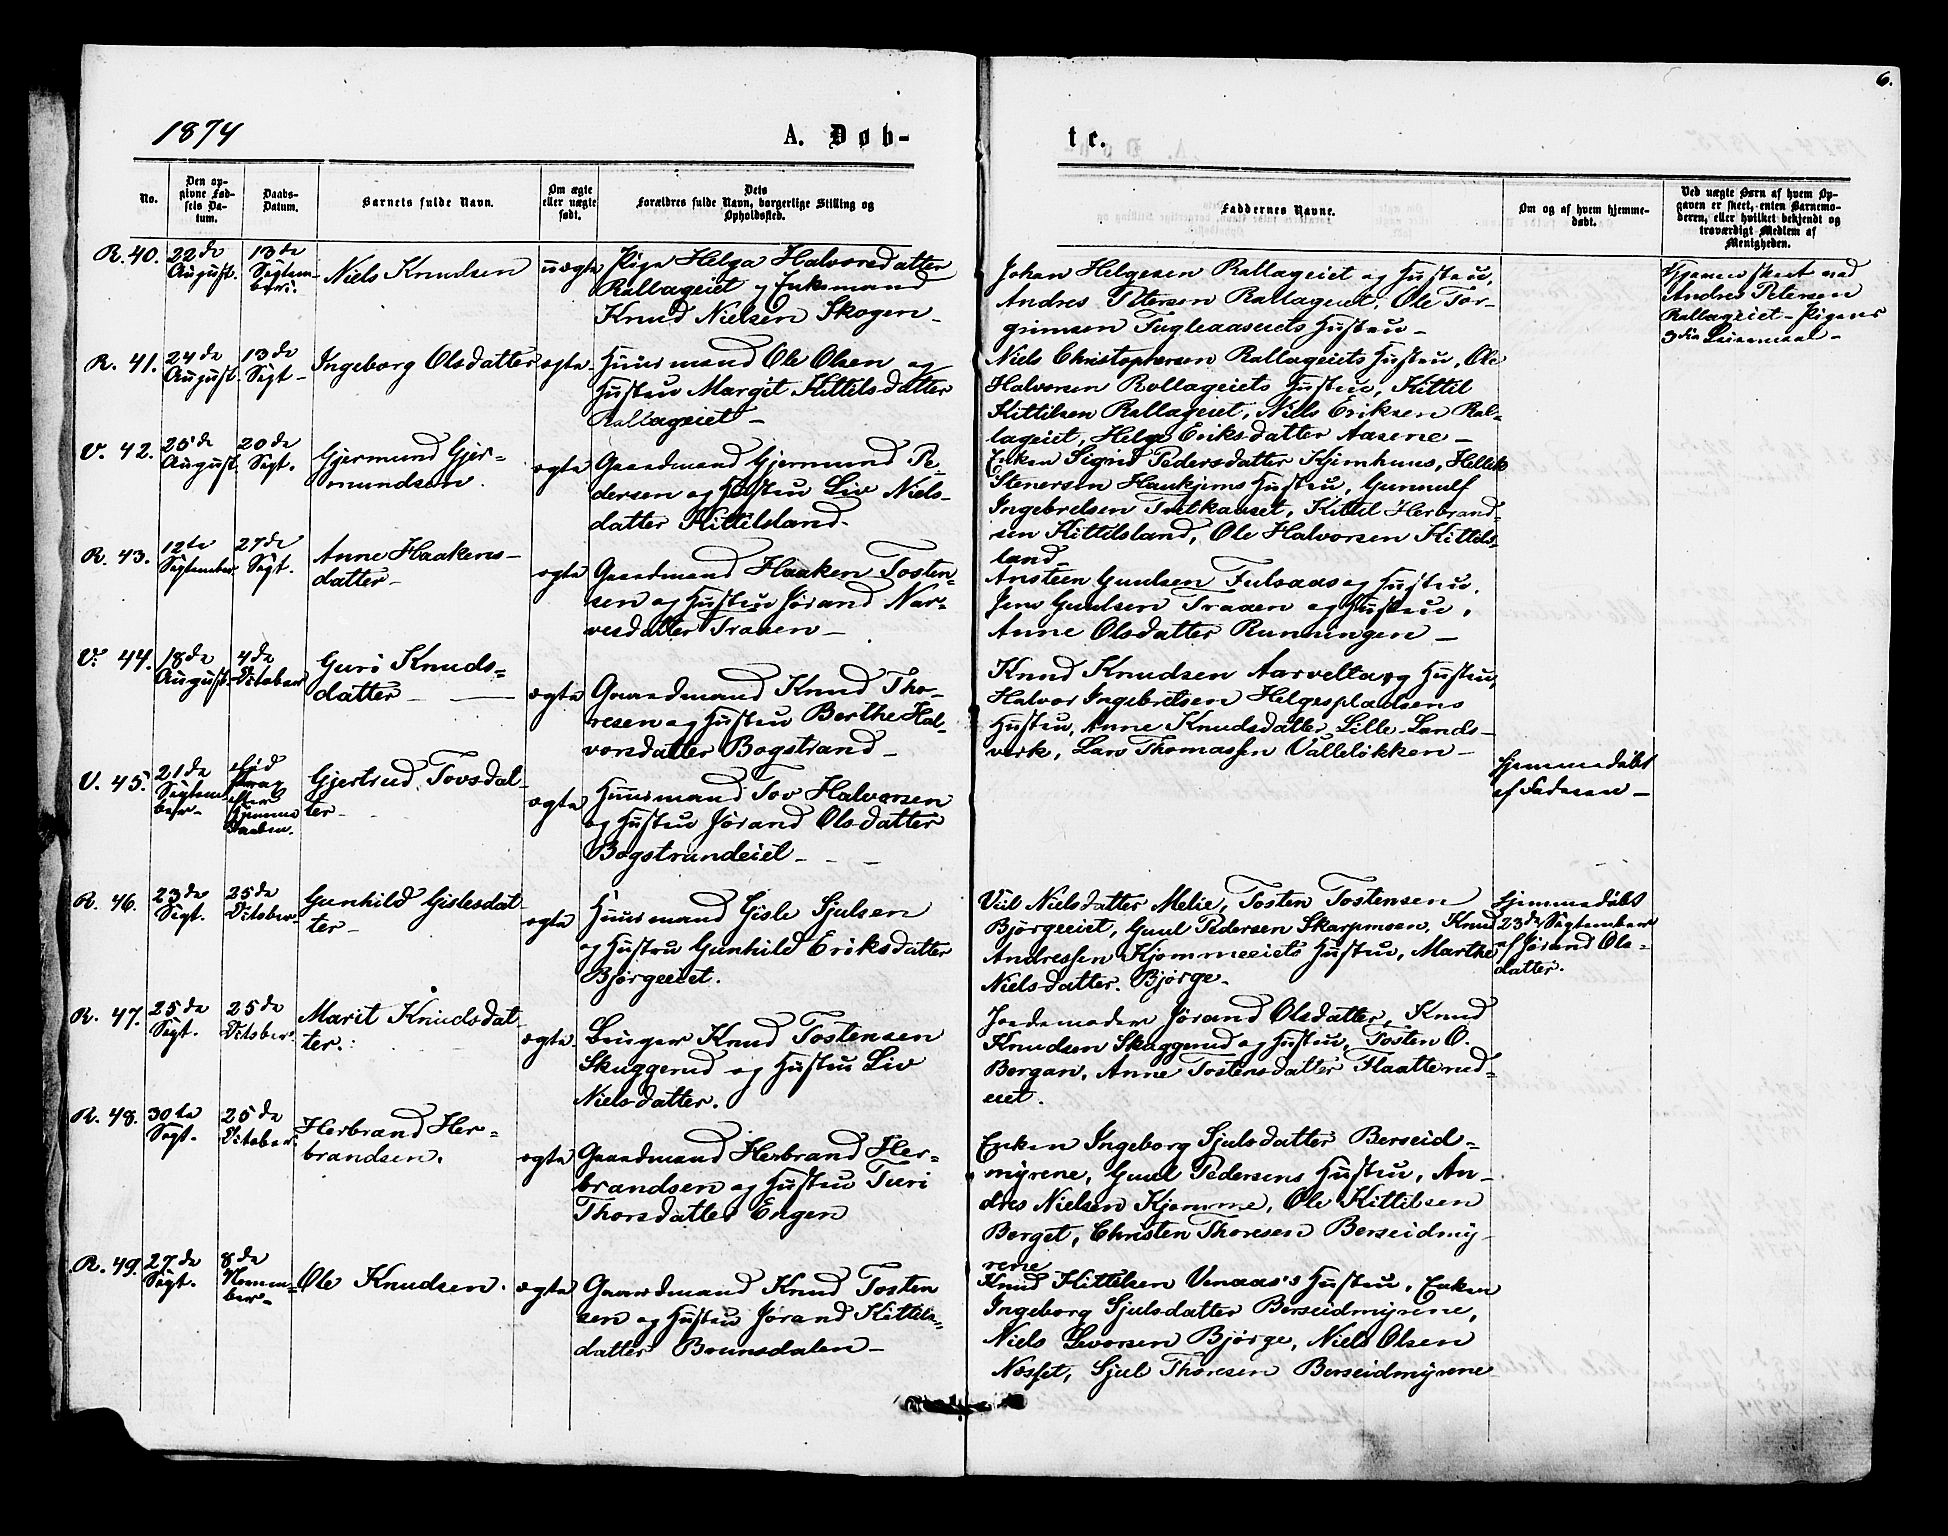 6.
1874
A. Døb-
te.
No.
Den op-
givne Fød-
sels Da-
tum.
Daabs-
Datum.
Barnets fulde Navn.
Om ægte
eller uægte
født.
Dets
Forældres fulde Navn, borgerlige Stilling og
Opholdssted.
Faddernes Navne.
Om og af hvem hjemme-
døbt.
Ved uægte Børn af hvem Op-
gaven er skeet, enten Barnemo-
deren, eller hvilket bekjendt og
troværdigt Medlem af
Menigheden.
R. 40.
22de
August.
13de
Septem-
ber.
Niels Knudsen
uægte
Pige Helga Halvorsdatter
Rallageiet og Enkemand
Knud Nielsen Skogen-
Johan Helgesen Rallageiet og Hustru,
Andres Petersen Rallageiet, Ole Tor-
grimsen Fugleaasens Hustru-
Andres Petersen
Rallageiet - Pigens
3die Leiermaal-
R. 41.
24de
August.
13de
Sept-
Ingeborg Olsdatter
ægte.
Huusmand Ole Olsen og
Hustru Margit Kittilsdatter
Rallageiet-
Niels Christophersen Rallageiets Hustru, Ole
Halvorsen Rollageiets Hustru, Kittil
Kittilsen Rallageiet, Niels Eriksen Ral-
lageiet, Helge Eriksdatter Aasene-
V. 42.
25de
August.
20de
Sept.
Gjermund Gjer-
mundsen.
ægte
Gaardmand Gjermund Pe-
dersen og Hustru Liv Niels-
datter Kittilsland.
Enken Sigrid Pedersdatter Kjemhuus, Hellek
Stenersen Haukjems Hustru, Gunnulf
Ingebretsen, Kittil Herbrand-
sen Kittilsland, Ole Halvorsen Kittils-
land-
R. 43.
12te
September
27de
Sept.
Anne Haakens-
datter-
ægte
Gaardmand Haaken Tosten-
sen og Hustru Jørand Nar-
vesdatter Traaen-
Ansteen Guulsen Fulsaas og Hustru,
Jens Guulsen Traaen og Hustru,
Anne Olsdatter Runningen-
V. 44.
18de
August.
4de
October
Guri Knuds-
datter-
ægte
Gaardmand Knud Tho-
resen og Hustru Berthe Hal-
vorsdatter Bogstrand-
Knud Knudsen Aarvelta og Hustru,
Halvor Ingebretsen Helgespladsens
Hustru, Anne Knudsdatter Lille-Lands-
verk, Lars Thomassen Valleløkken-
V. 45.
21de
Septem-
ber-
død
strax
efter
Hjemme-
daaben.
Gjertrud Tovsdat-
ter-
ægte
Huusmand Tov Halvorsen
og Hustru Jørand Olsdatter
Bogstrandeiet-
Hjemmedøbt
af Faderen-
R. 46.
23de
Sept.
25de
October-
Gunhild Gislesdat-
ter-
ægte
Huusmand Gisle Sjulsen
og Hustru Gunhild Eriksdatter
Bjørgeeiet.
Nielsdatter Melie, Tosten Tostensen
Bjørgeeiet, Guul Pedersen Skarpmoen, Knud
Andressen Kjommeeiets Hustru, Marthe
Nielsdatter Bjørge.
Hjemmedøbt
23de September
af Jørand Ols-
datter.
R. 47.
25de
Sept.
25de
October
Marit Knudsdat-
ter.
ægte
Bruger Knud Tostensen
Skuggerud og Hustru Liv
Nielsdatter.
Jordemoder Jørand Olsdatter, Knud
Knudsen Skuggerud og Hustru, Tosten O.
Bergan, Anne Tostensdatter Flaatterud-
eiet.
R. 48.
30te
Sept.
25de
October
Herbrand Her-
brandsen.
ægte
Gaardmand Herbrand Her-
brandsen og Hustru Turi
Thorsdatter Engen
Enken Ingeborg Sjulsdatter Berseid-
myrene, Guul Pedersens Hustru, An-
dres Nielsen Kjomme, Ole Kittilsen
Berget, Christen Thoresen Berseidmy-
rene
R. 49.
27de
Sept.
8de
Novem-
ber-
Ole Knudsen.
ægte
Gaardmand Knud Tosten
sen og Hustru Jørand Kittils-
datter Brunsdalen-
Knud Kittilsen Venaas's Hustru, Enken
Ingeborg Sjulsdatter Berseidmyrene,
Niels Levorsen Bjørge, Niels Olsen
Næsset, Sjul Thoresen Berseidmyrene